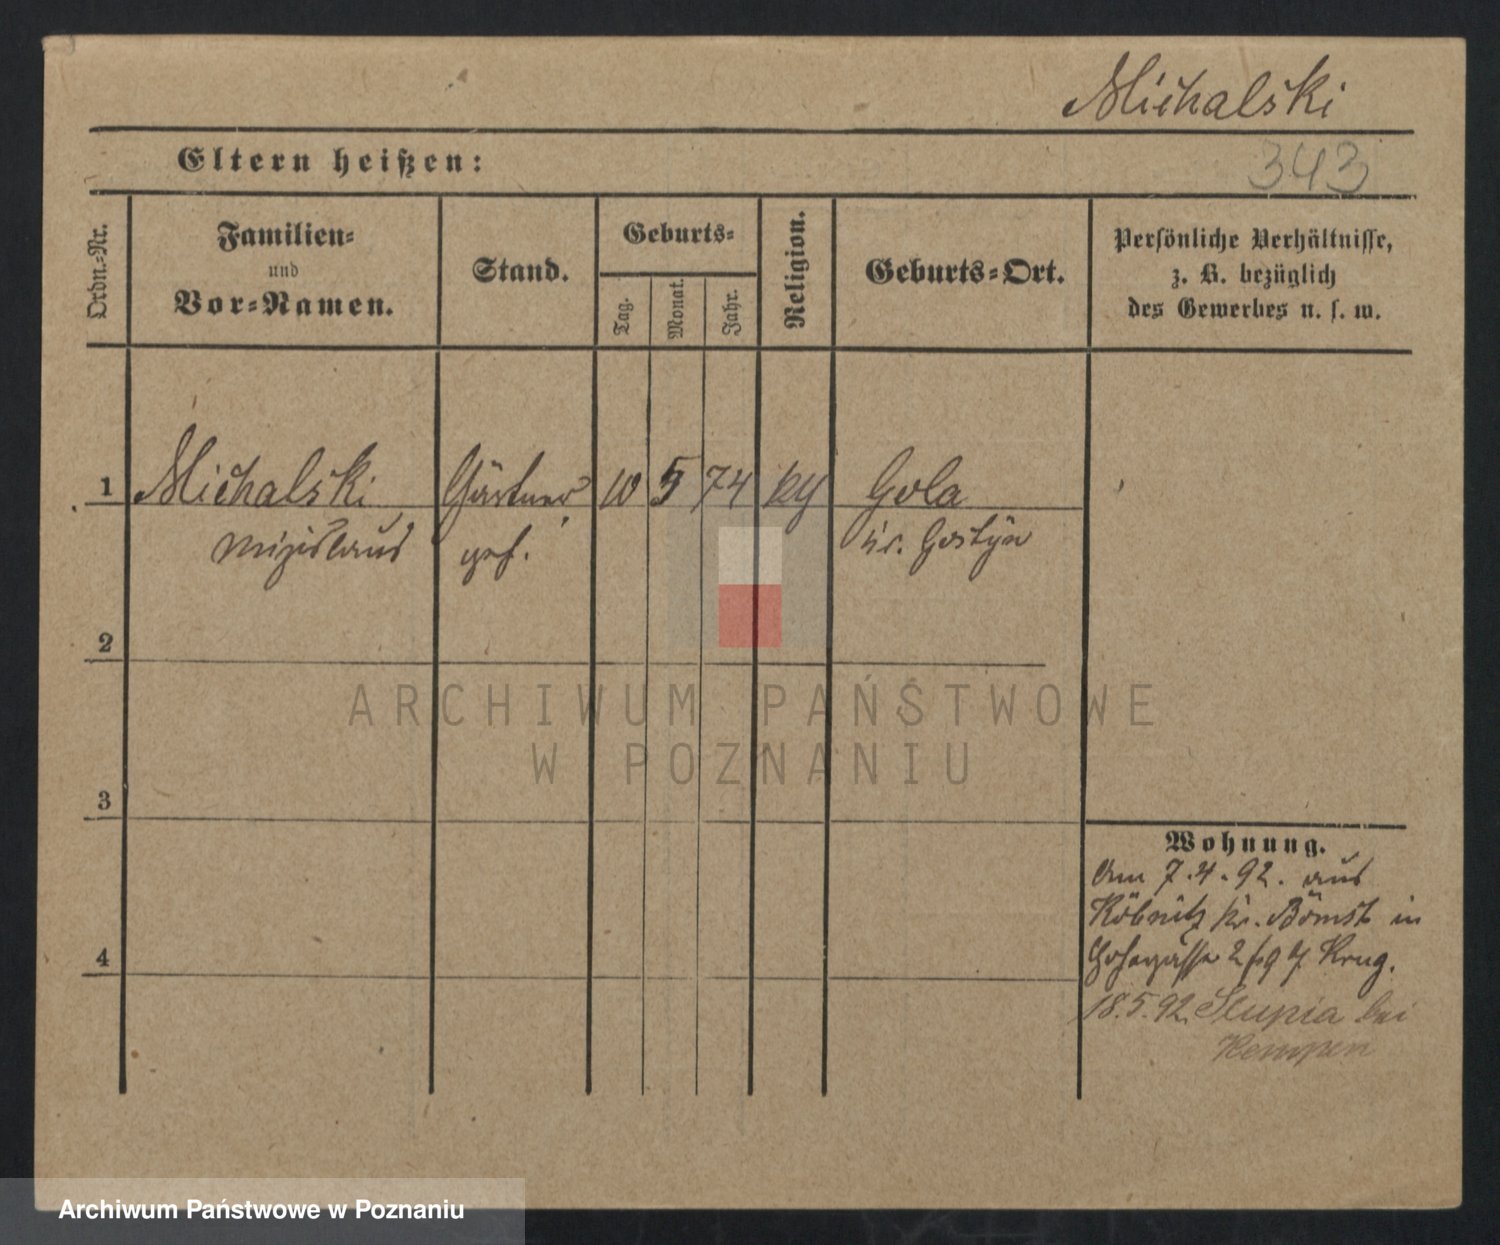 Michalski
Eltern heißen:
343
Ordn.=Nr.
Familien=
und
Vor=Namen.
Stand.
Geburts=
Tag.
Monat.
Jahr.
Religion.
Geburts=Ort.
Persönliche Verhältnisse,
z. B. bezüglich
des Gewerbes u. s. w.
1 Michalski Gärtner 10 5 74 Gola
Mizislaus geh. Kr. Gostyn
2
3
4
Wohnung.
Am 7.4.92. aus
Köbnitz Kr. Bomst in
2 Krug.
18.5.92. Slupia bei
Kempen
ARCHIWUM PAŃSTWOWE
W POZNANIU
Archiwum Państwowe w Poznaniu